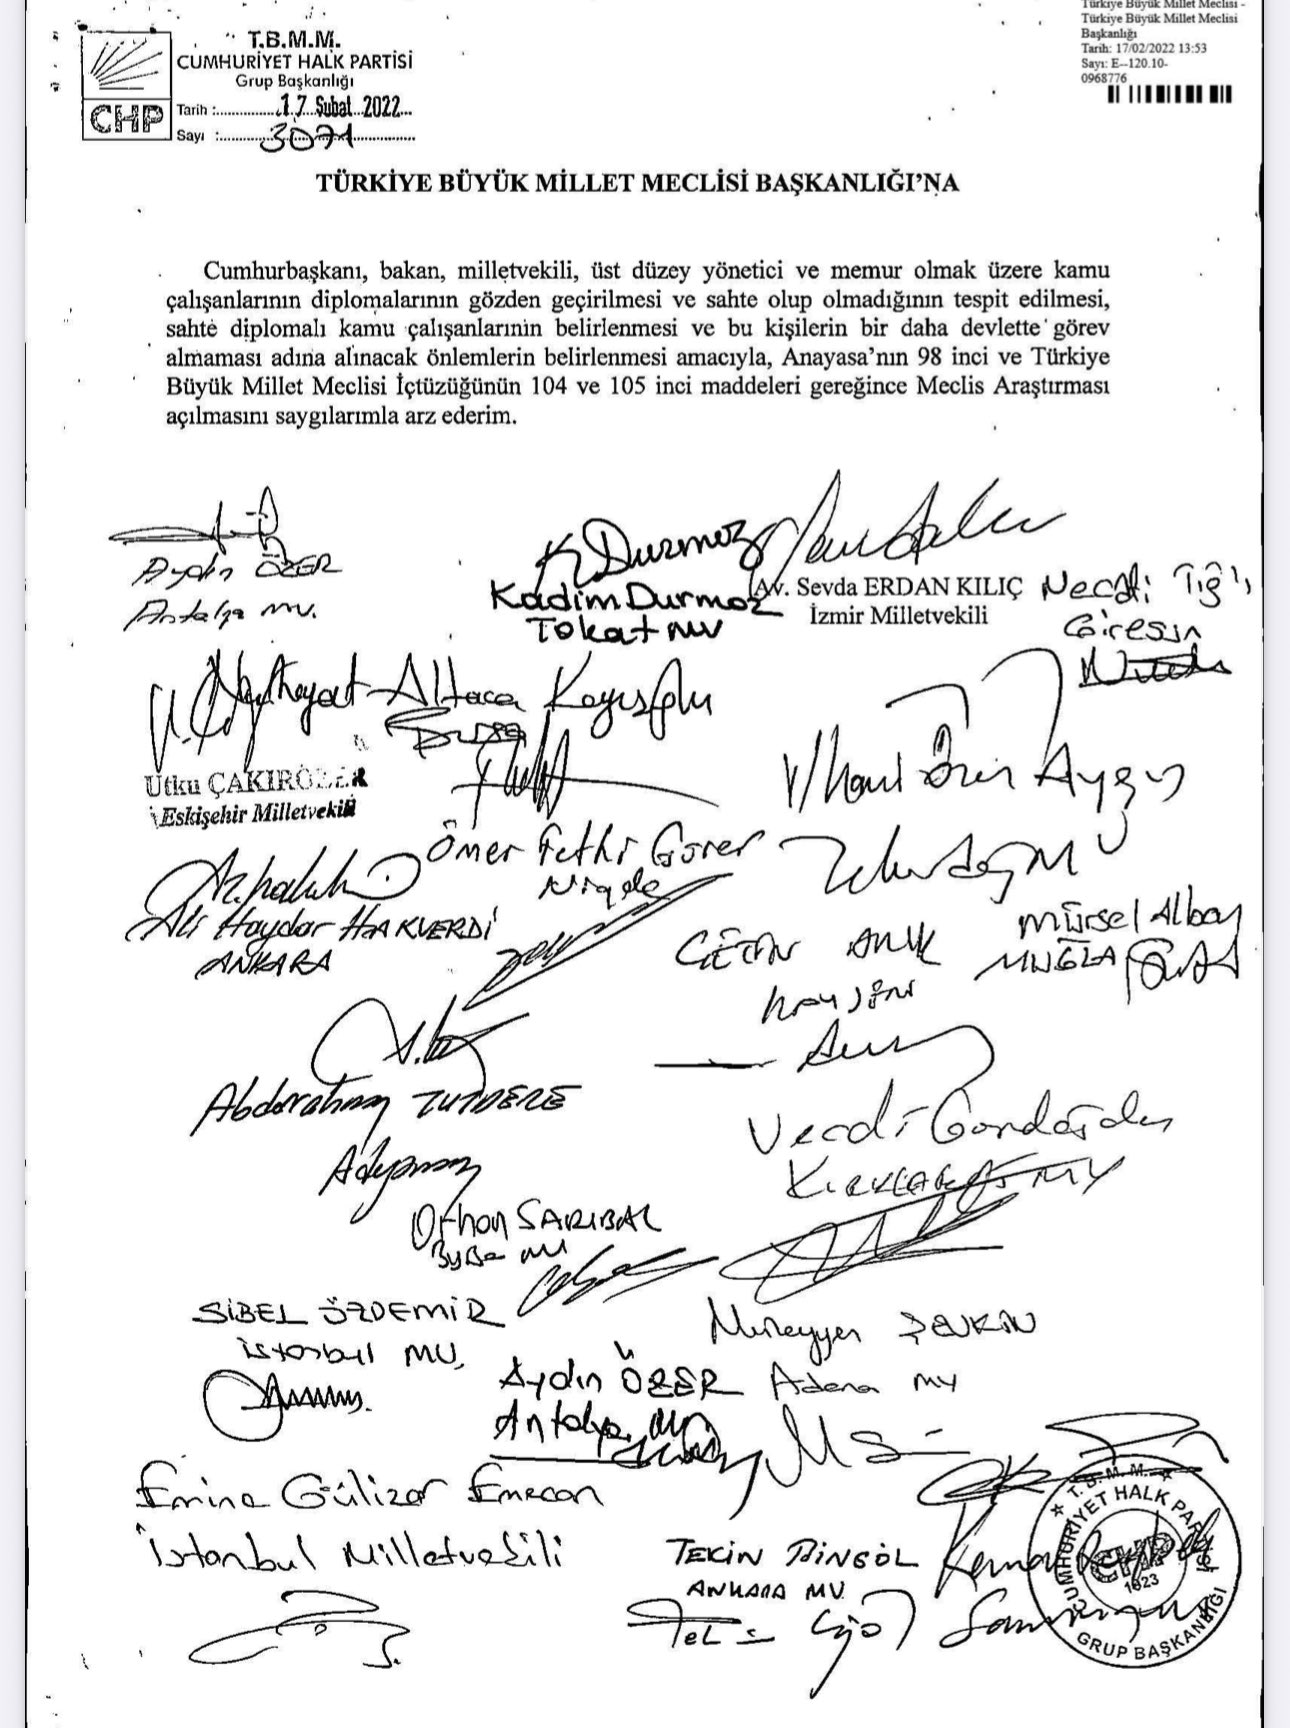 T.B.M.M.
CUMHURİYET HALK PARTİSİ
Grup Başkanlığı
Tarih :..............17 Şubat 2022...
Sayı :.......3071..............
CHP
Türkiye Büyük Millet Meclisi -
Türkiye Büyük Millet Meclisi
Başkanlığı
Tarih: 17/02/2022 13:53
Sayı: E--120.10-
0968776
TÜRKİYE BÜYÜK MİLLET MECLİSİ BAŞKANLIĞI’NA
Cumhurbaşkanı, bakan, milletvekili, üst düzey yönetici ve memur olmak üzere kamu
çalışanlarının diplomalarının gözden geçirilmesi ve sahte olup olmadığının tespit edilmesi,
sahte diplomalı kamu çalışanlarının belirlenmesi ve bu kişilerin bir daha devlette görev
almaması adına alınacak önlemlerin belirlenmesi amacıyla, Anayasa’nın 98 inci ve Türkiye
Büyük Millet Meclisi İçtüzüğünün 104 ve 105 inci maddeleri gereğince Meclis Araştırması
açılmasını saygılarımla arz ederim.
Aydın ÖZER
Antalya mv.
K Durmaz
Kadim Durmaz
Tokat MV
Av. Sevda ERDAN KILIÇ
İzmir Milletvekili
Necati Tığlı
Giresun
Nurhayat Altaca Kayışoğlu
Bursa
Utku ÇAKIRÖZER
Eskişehir Milletvekili
İlhami Özcan Aygun
Tekirdağ MV
Ömer Fethi Gürer
Niğde
Ali Haydar HAKVERDİ
ANKARA
ÇETİN ARIK
KAYSERİ
Mürsel Alban
MUĞLA
Abdurrahman TUTDERE
Adıyaman
Vecdi Gündoğdu
KIRKLARELİ MV
Orhan SARIBAL
Bursa MV
SİBEL ÖZDEMİR
İstanbul MV.
Müzeyyen ŞEVKİN
Adana MV
Aydın ÖZER
Antalya MV
Emine Gülizar Emecan
İstanbul Milletvekili
TEKİN BİNGÖL
ANKARA MV
T.B.M.M.
CUMHURİYET HALK PARTİSİ
CHP
1923
GRUP BAŞKANLIĞI